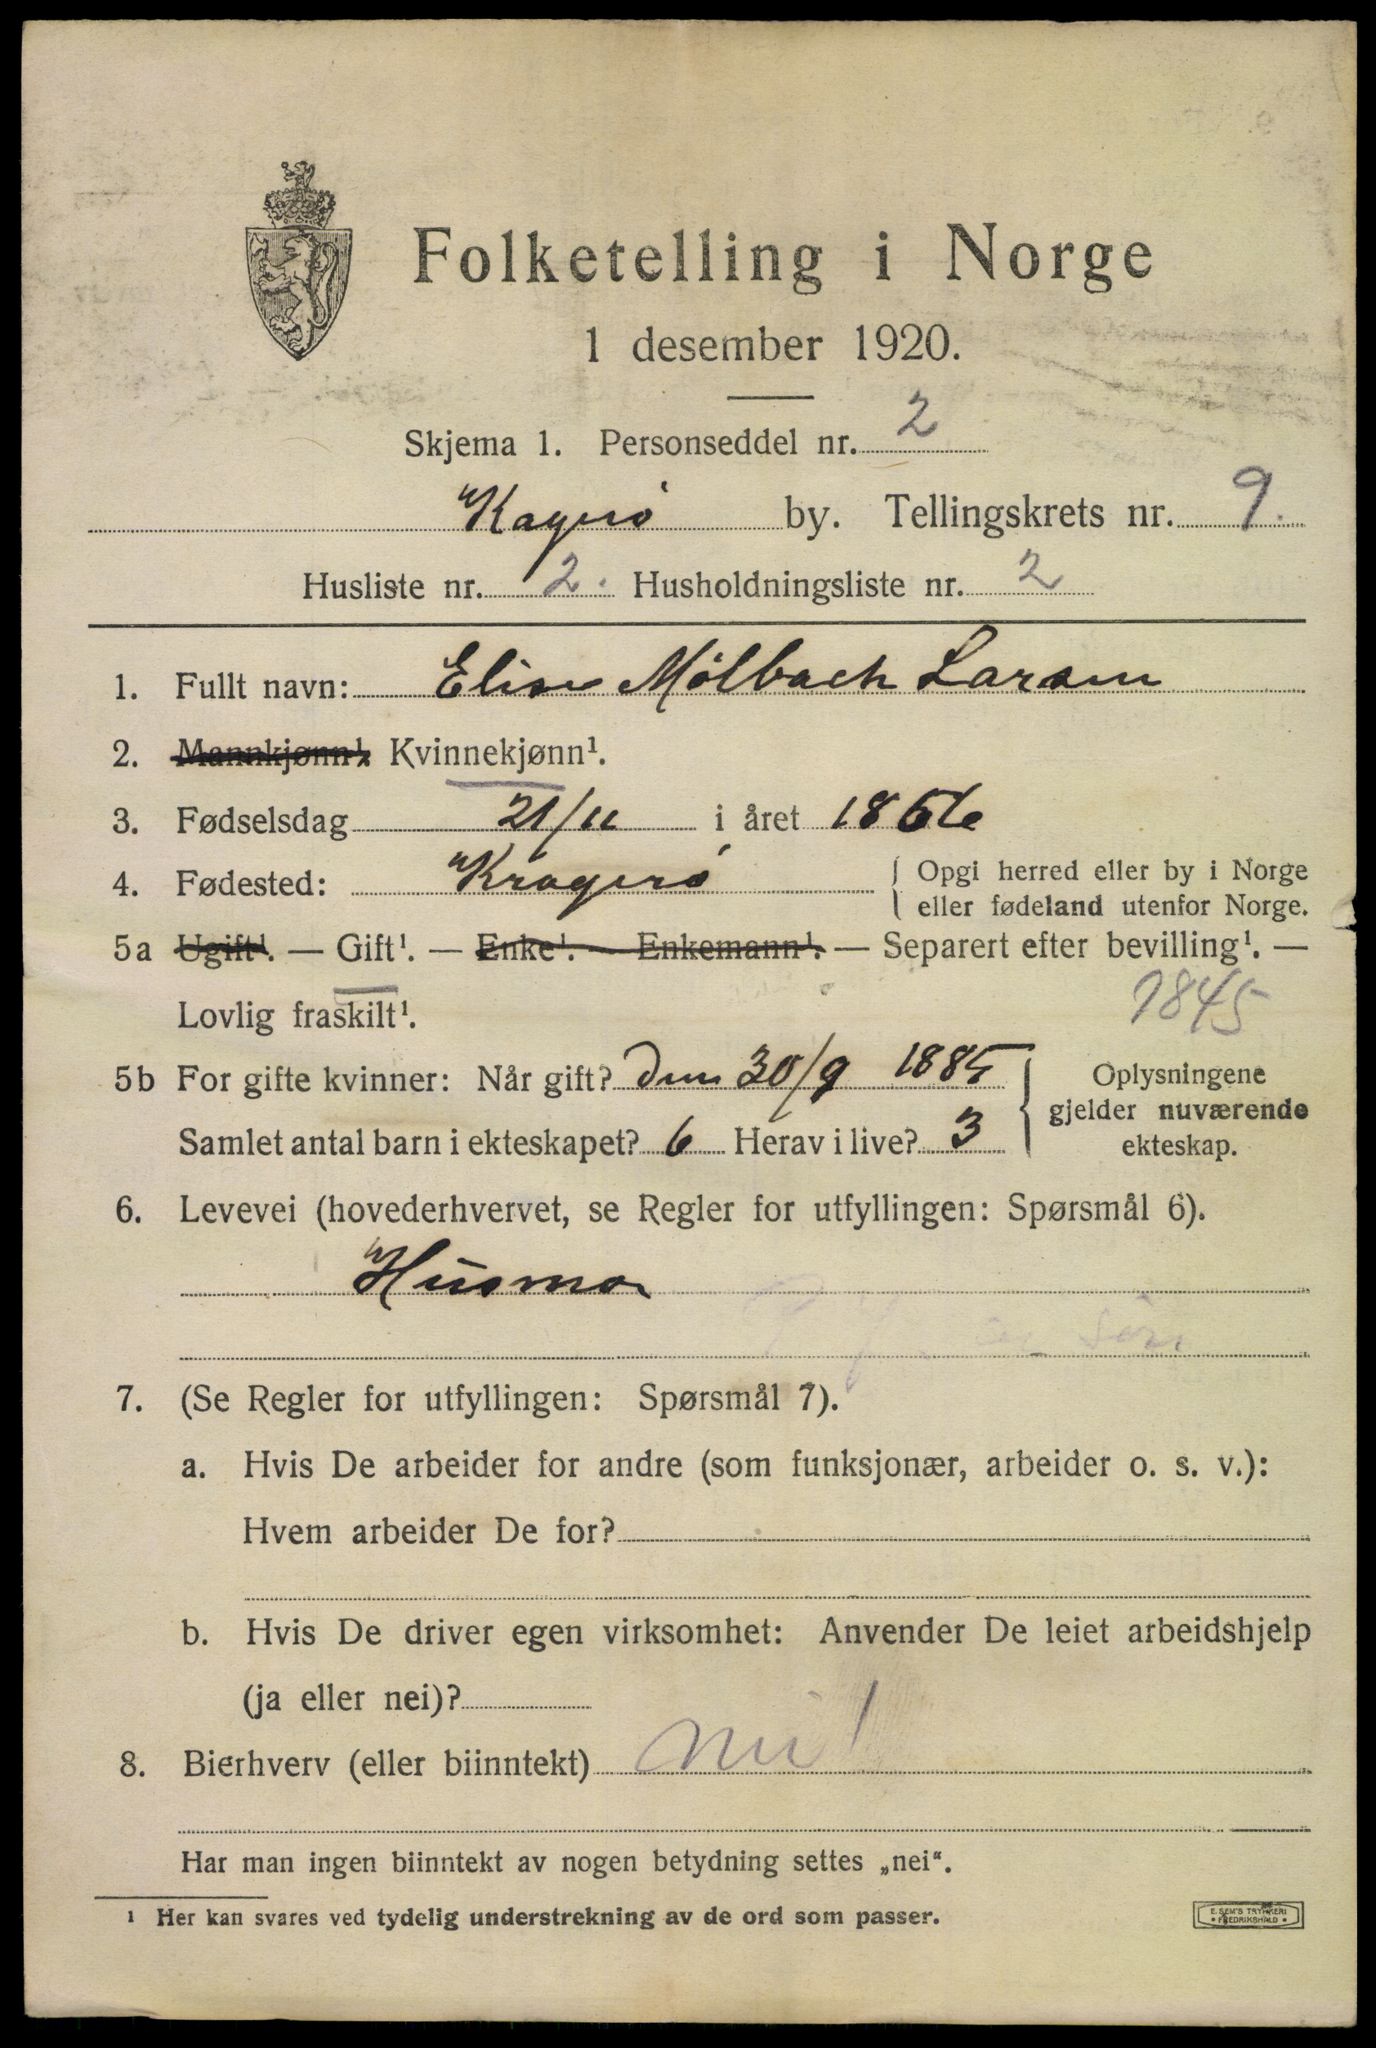 Folketelling i Norge
1 desember 1920.
Skjema 1. Personseddel nr. 2
Kagerø by. Tellingskrets nr. 9.
Husliste nr. 2. Husholdningsliste nr. 2
1. Fullt navn: Elise Mølbach Larsen
2. Mannkjønn¹. Kvinnekjønn¹.
3. Fødselsdag 21/11 i året 1856
4. Fødested: Kragerø { Opgi herred eller by i Norge
eller fødeland utenfor Norge.
5a Ugift¹. — Gift¹. — Enke¹. — Enkemann¹. — Separert efter bevilling¹. —
Lovlig fraskilt¹. 1845
5b For gifte kvinner: Når gift? den 30/9 1885 } Oplysningene
gjelder nuværende
Samlet antal barn i ekteskapet? 6 Herav i live? 3 ekteskap.
6. Levevei (hovederhvervet, se Regler for utfyllingen: Spørsmål 6).
Husmor
7. (Se Regler for utfyllingen: Spørsmål 7).
a. Hvis De arbeider for andre (som funksjonær, arbeider o. s. v.):
Hvem arbeider De for?
b. Hvis De driver egen virksomhet: Anvender De leiet arbeidshjelp
(ja eller nei)?
8. Bierhverv (eller biinntekt) nei!
Har man ingen biinntekt av nogen betydning settes „nei“.
¹ Her kan svares ved tydelig understrekning av de ord som passer.
E. SEM'S TRYKKERI
FREDRIKSHALD